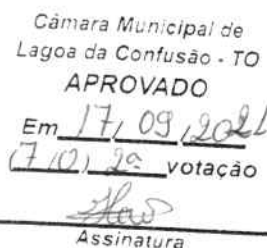 Câmara Municipal de
Lagoa da Confusão - TO
APROVADO
Em 17, 09, 2021
(7 10) 2ª votação
Assinatura